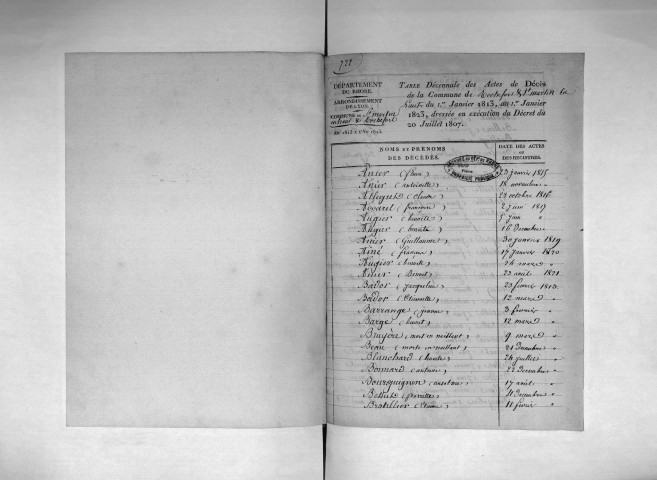 721
DÉPARTEMENT
DU RHÔNE.
ARRONDISSEMENT
DE LYON.
COMMUNE de St martin
Rochefort
De 1813 à l'An 1823.
TABLE Décennale des Actes de Décès
de la Commune de Rochefort & St martin la
du 1.er Janvier 1813, au 1.er Janvier
1823, dressée en exécution du Décret du
20 Juillet 1807.
NOMS ET PRÉNOMS
DES DÉCÉDÉS.
DATE DES ACTES
OU
DES REGISTRES.
(Jean) 23 janvier 1815
(antoinette) 18 novembre "
(Claude) 28 octobre 1816
(françoise) 2 juin 1817
Augier (benoite) 5 juin "
(benoite) 16 Decembre
(Guillaume) 30 janvier 1819
Ainé (françois) 17 janvier 1820
Augier (benoite) 24 mars "
(Benoit) 23 avril 1821
Bador (jacqueline) 23 fevrier 1813
Bador (Etiennette) 12 mars "
Barrange (jeanne) 3 fevrier "
Barge (benoit) 12 mars "
Bruyère (mort en naissant) 9 mars "
Beau (morte en naissant) 21 Decembre "
Blanchard (benoite) 24 juillet "
Bonnard (antoine) 22 Decembre "
Bourguignon 17 avril "
(pierrette) 11 Decembre "
Bratillier (Etienne) 11 fevrier "